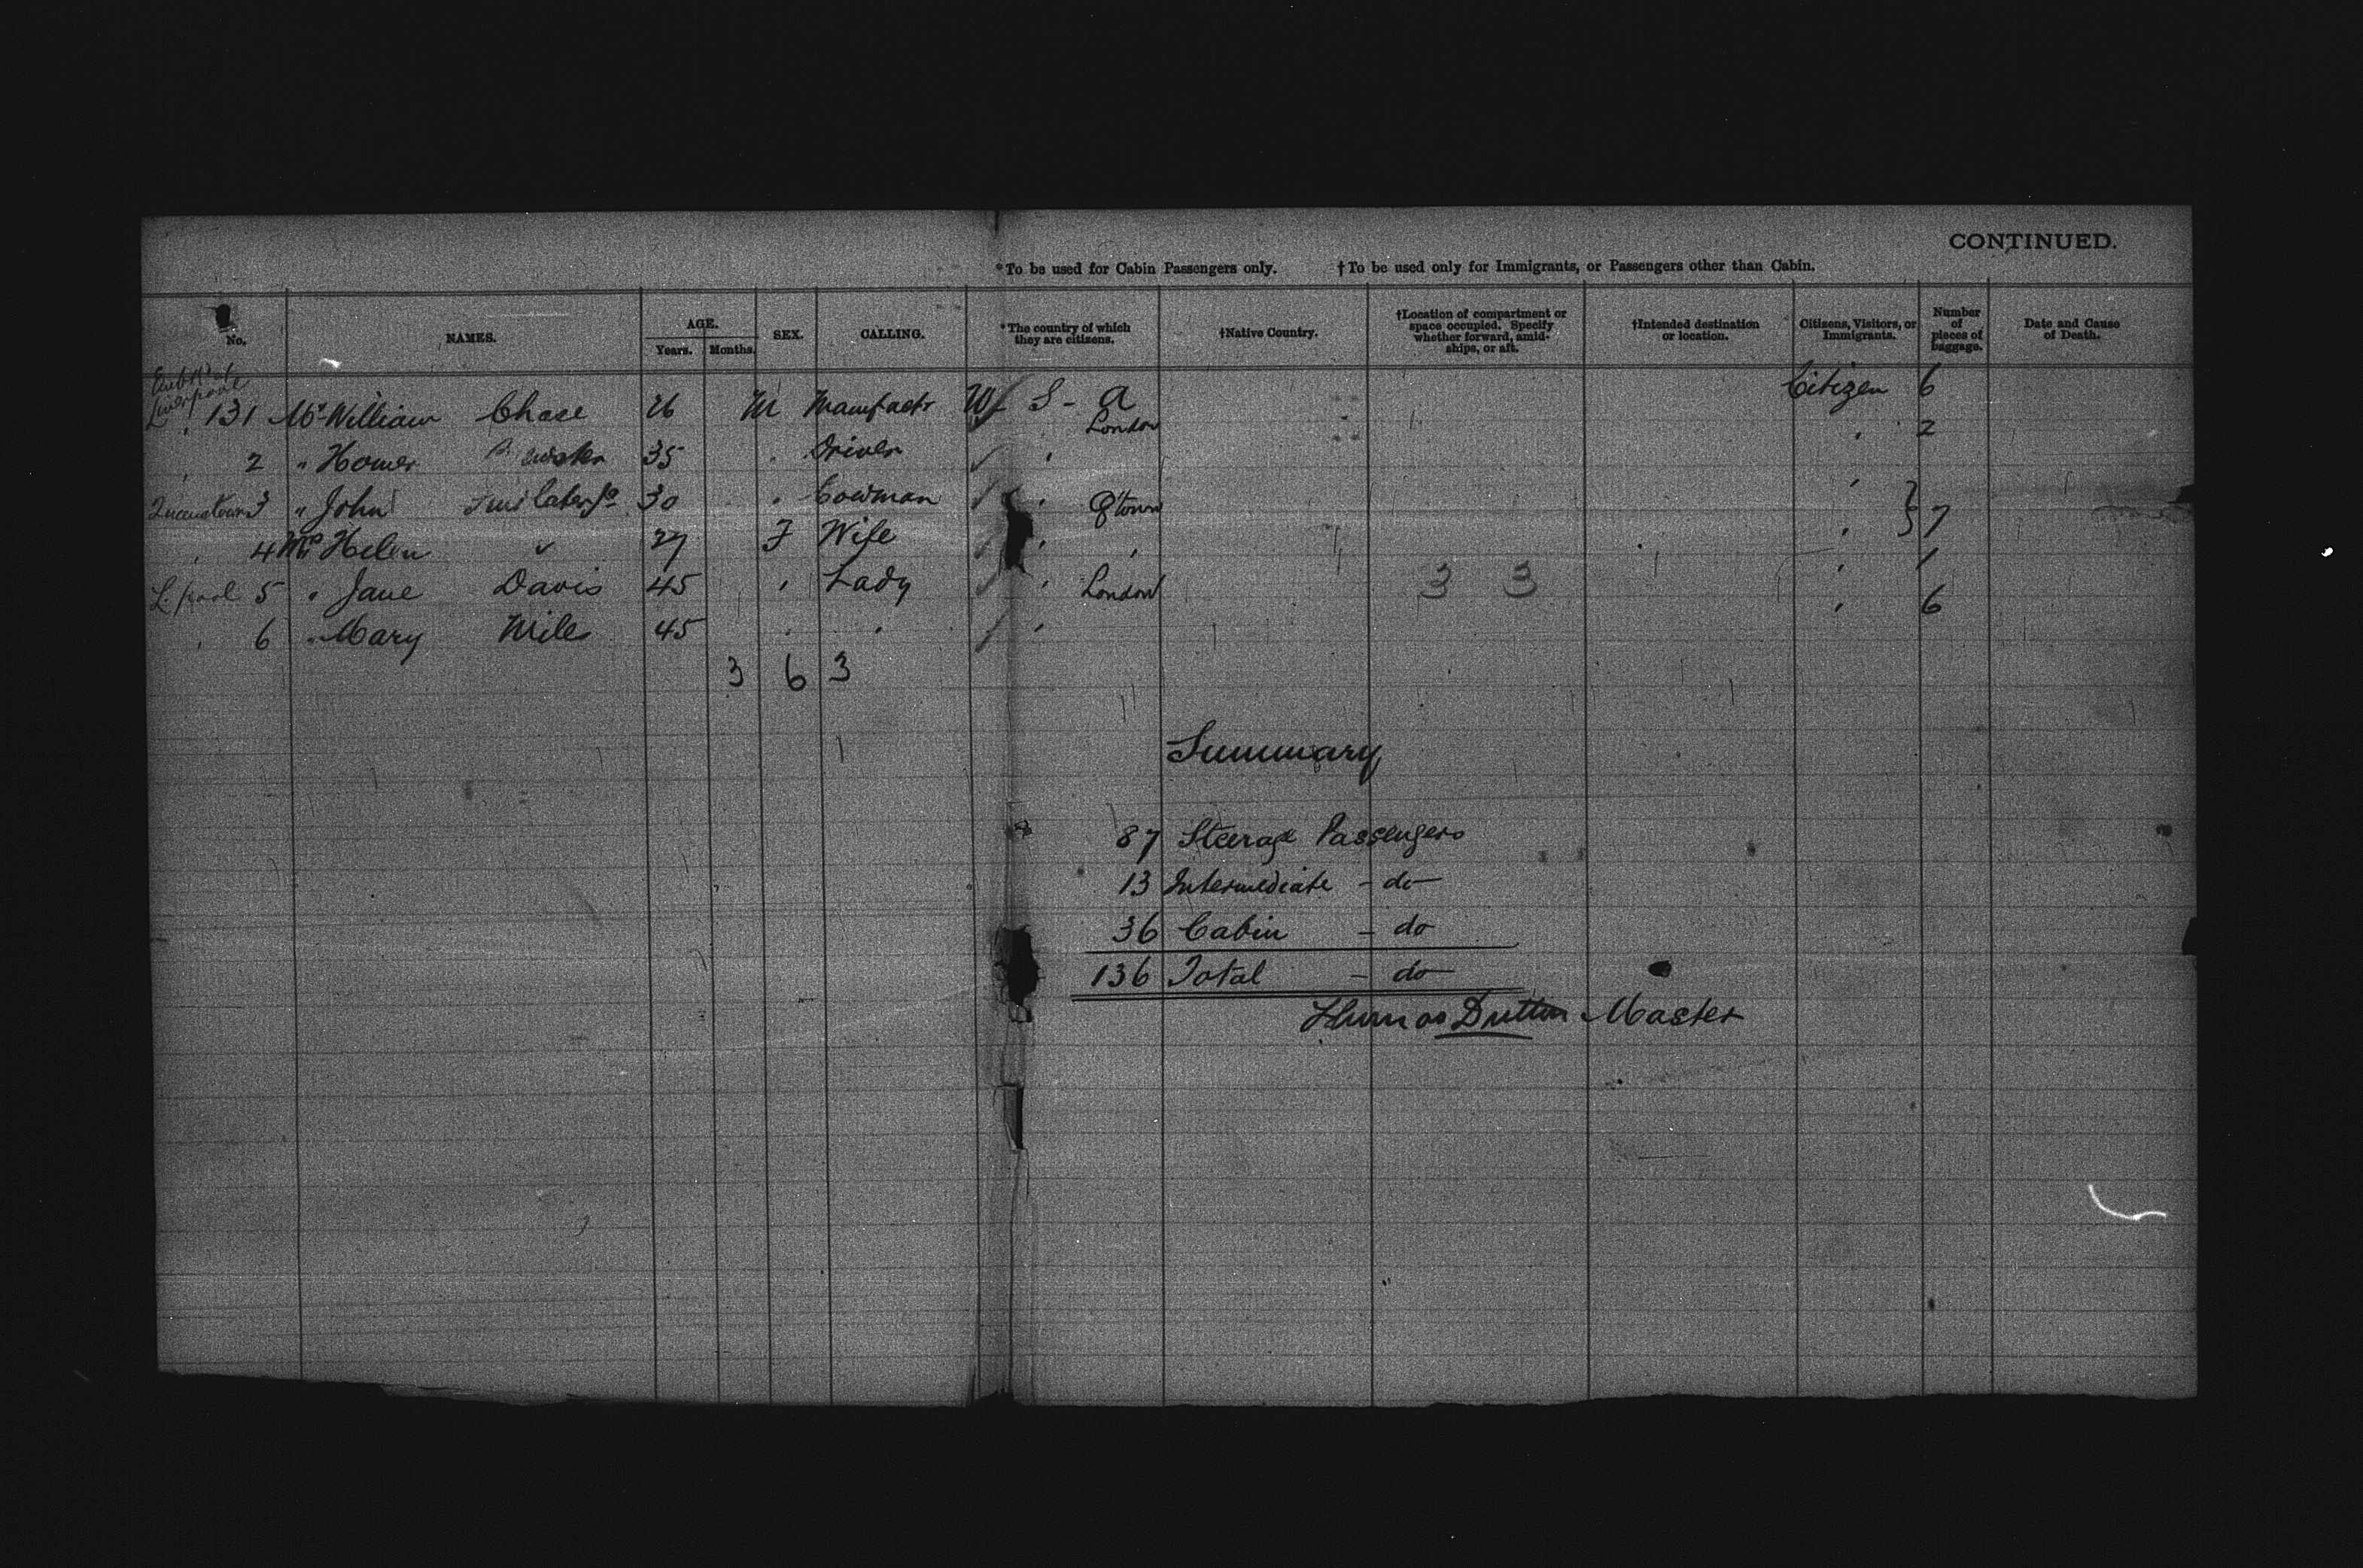 CONTINUED.
*To be used for Cabin Passengers only. †To be used only for Immigrants, or Passengers other than Cabin.
No. NAMES. AGE. Years. Months. SEX. CALLING. *The country of which they are citizens. †Native Country. †Location of compartment or space occupied. Specify whether forward, amidships, or aft. †Intended destination or location. Citizens, Visitors, or Immigrants. Number of pieces of baggage. Date and Cause of Death.
Liverpool
131 Mr William Chase 26 M Manufactr U S - A Citizen 6
London 2
2 " Homer 35 " Driver "
Queenstown 3 " John 30 " Cowman " Q'town "
" 4 Mrs Helen " 27 F Wife " " " } 7
L.pool 5 " Jane Davis 45 " Lady " London " 1
3 3
" 6 " Mary Mile 45 " " " " 6
3 6 3
Summary
87 Steerage Passengers
13 Intermediate - do
36 Cabin - do
136 Total - do
Thomas Dutton Master